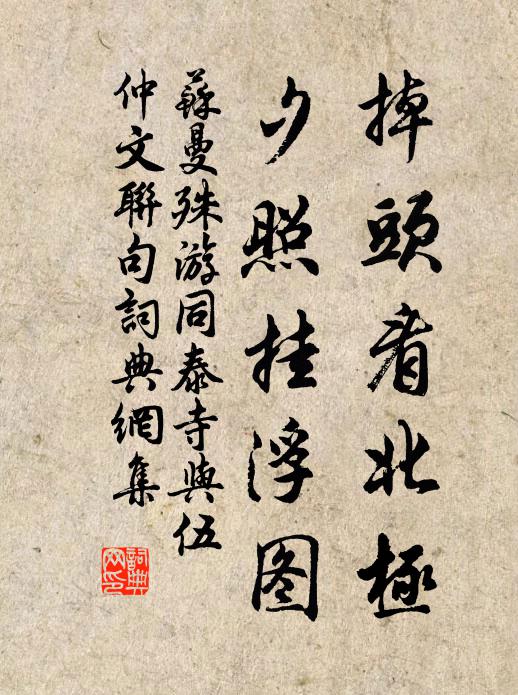 掉頭看北極
夕照挂浮图
蘇曼殊游同泰寺與伍
仲文聯句詞典網集
詞典
网印